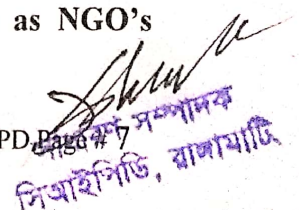 as NGO’s
PD,Page # 7
সাধারণ সম্পাদক
সিআইপিডি, রাঙ্গামাটি